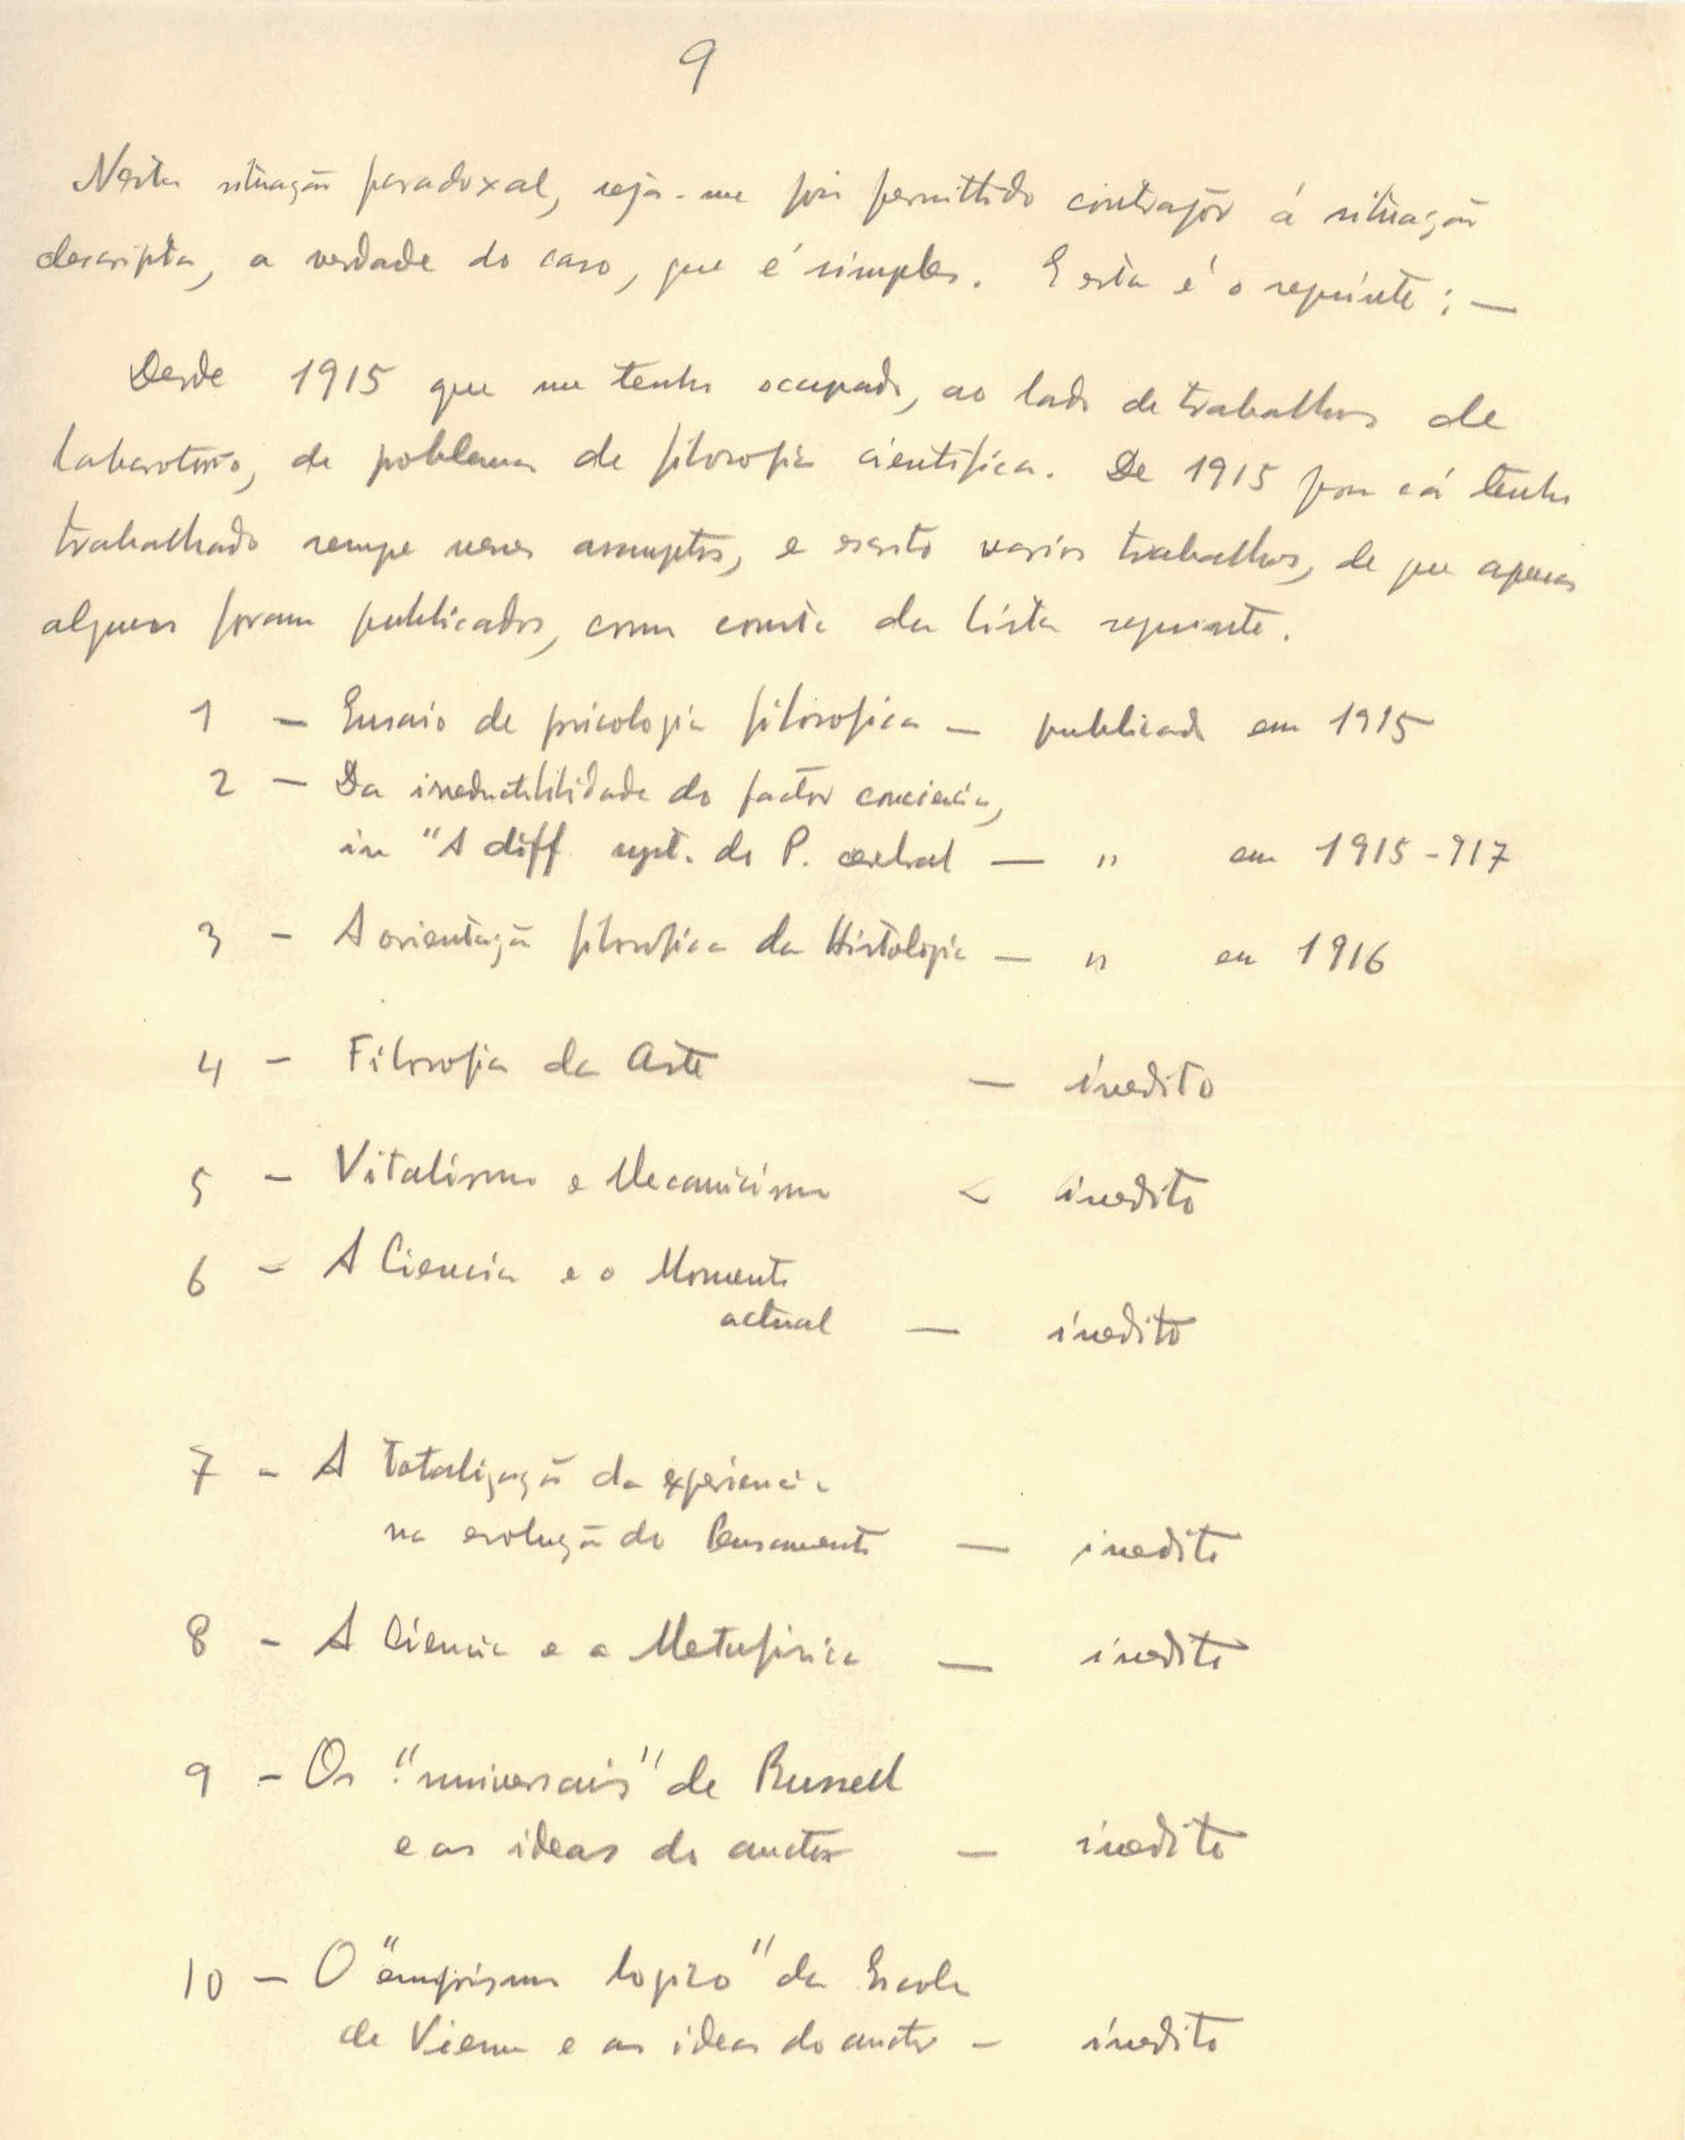 9
Nesta situação paradoxal, seja-me pois permittido contrapôr á situação
descripta, a verdade do caso, que é simples. E esta é o seguinte : —
Desde 1915 que me tenho occupado, ao lado de trabalhos de
laboratorio, de problemas de filosofia cientifica. De 1915 para cá tenho
trabalhado sempre nesses assumptos, e escrito varios trabalhos, de que apenas
alguns foram publicados, como consta da lista seguinte.
1 — Ensaio de psicologia filosofica — publicado em 1915
2 — Da irreductibilidade do factor conciencia,
in "A diff syst. do P. cerebral — " em 1915-917
3 - A orientação filosofica da Histologia — " em 1916
4 - Filosofia da Arte — inedito
5 - Vitalismo e Mecanicismo - inedito
6 - A Ciencia e o Momento
actual — inedito
7 - A Totalização da experiencia
na evolução do Pensamento — inedito
8 - A Ciencia e a Metafisica — inedito
9 - Os "universais" de Russell
e as ideas do auctor — inedito
10 — O "empirismo logico" da Escola
de Viena e as ideas do auctor - inedito